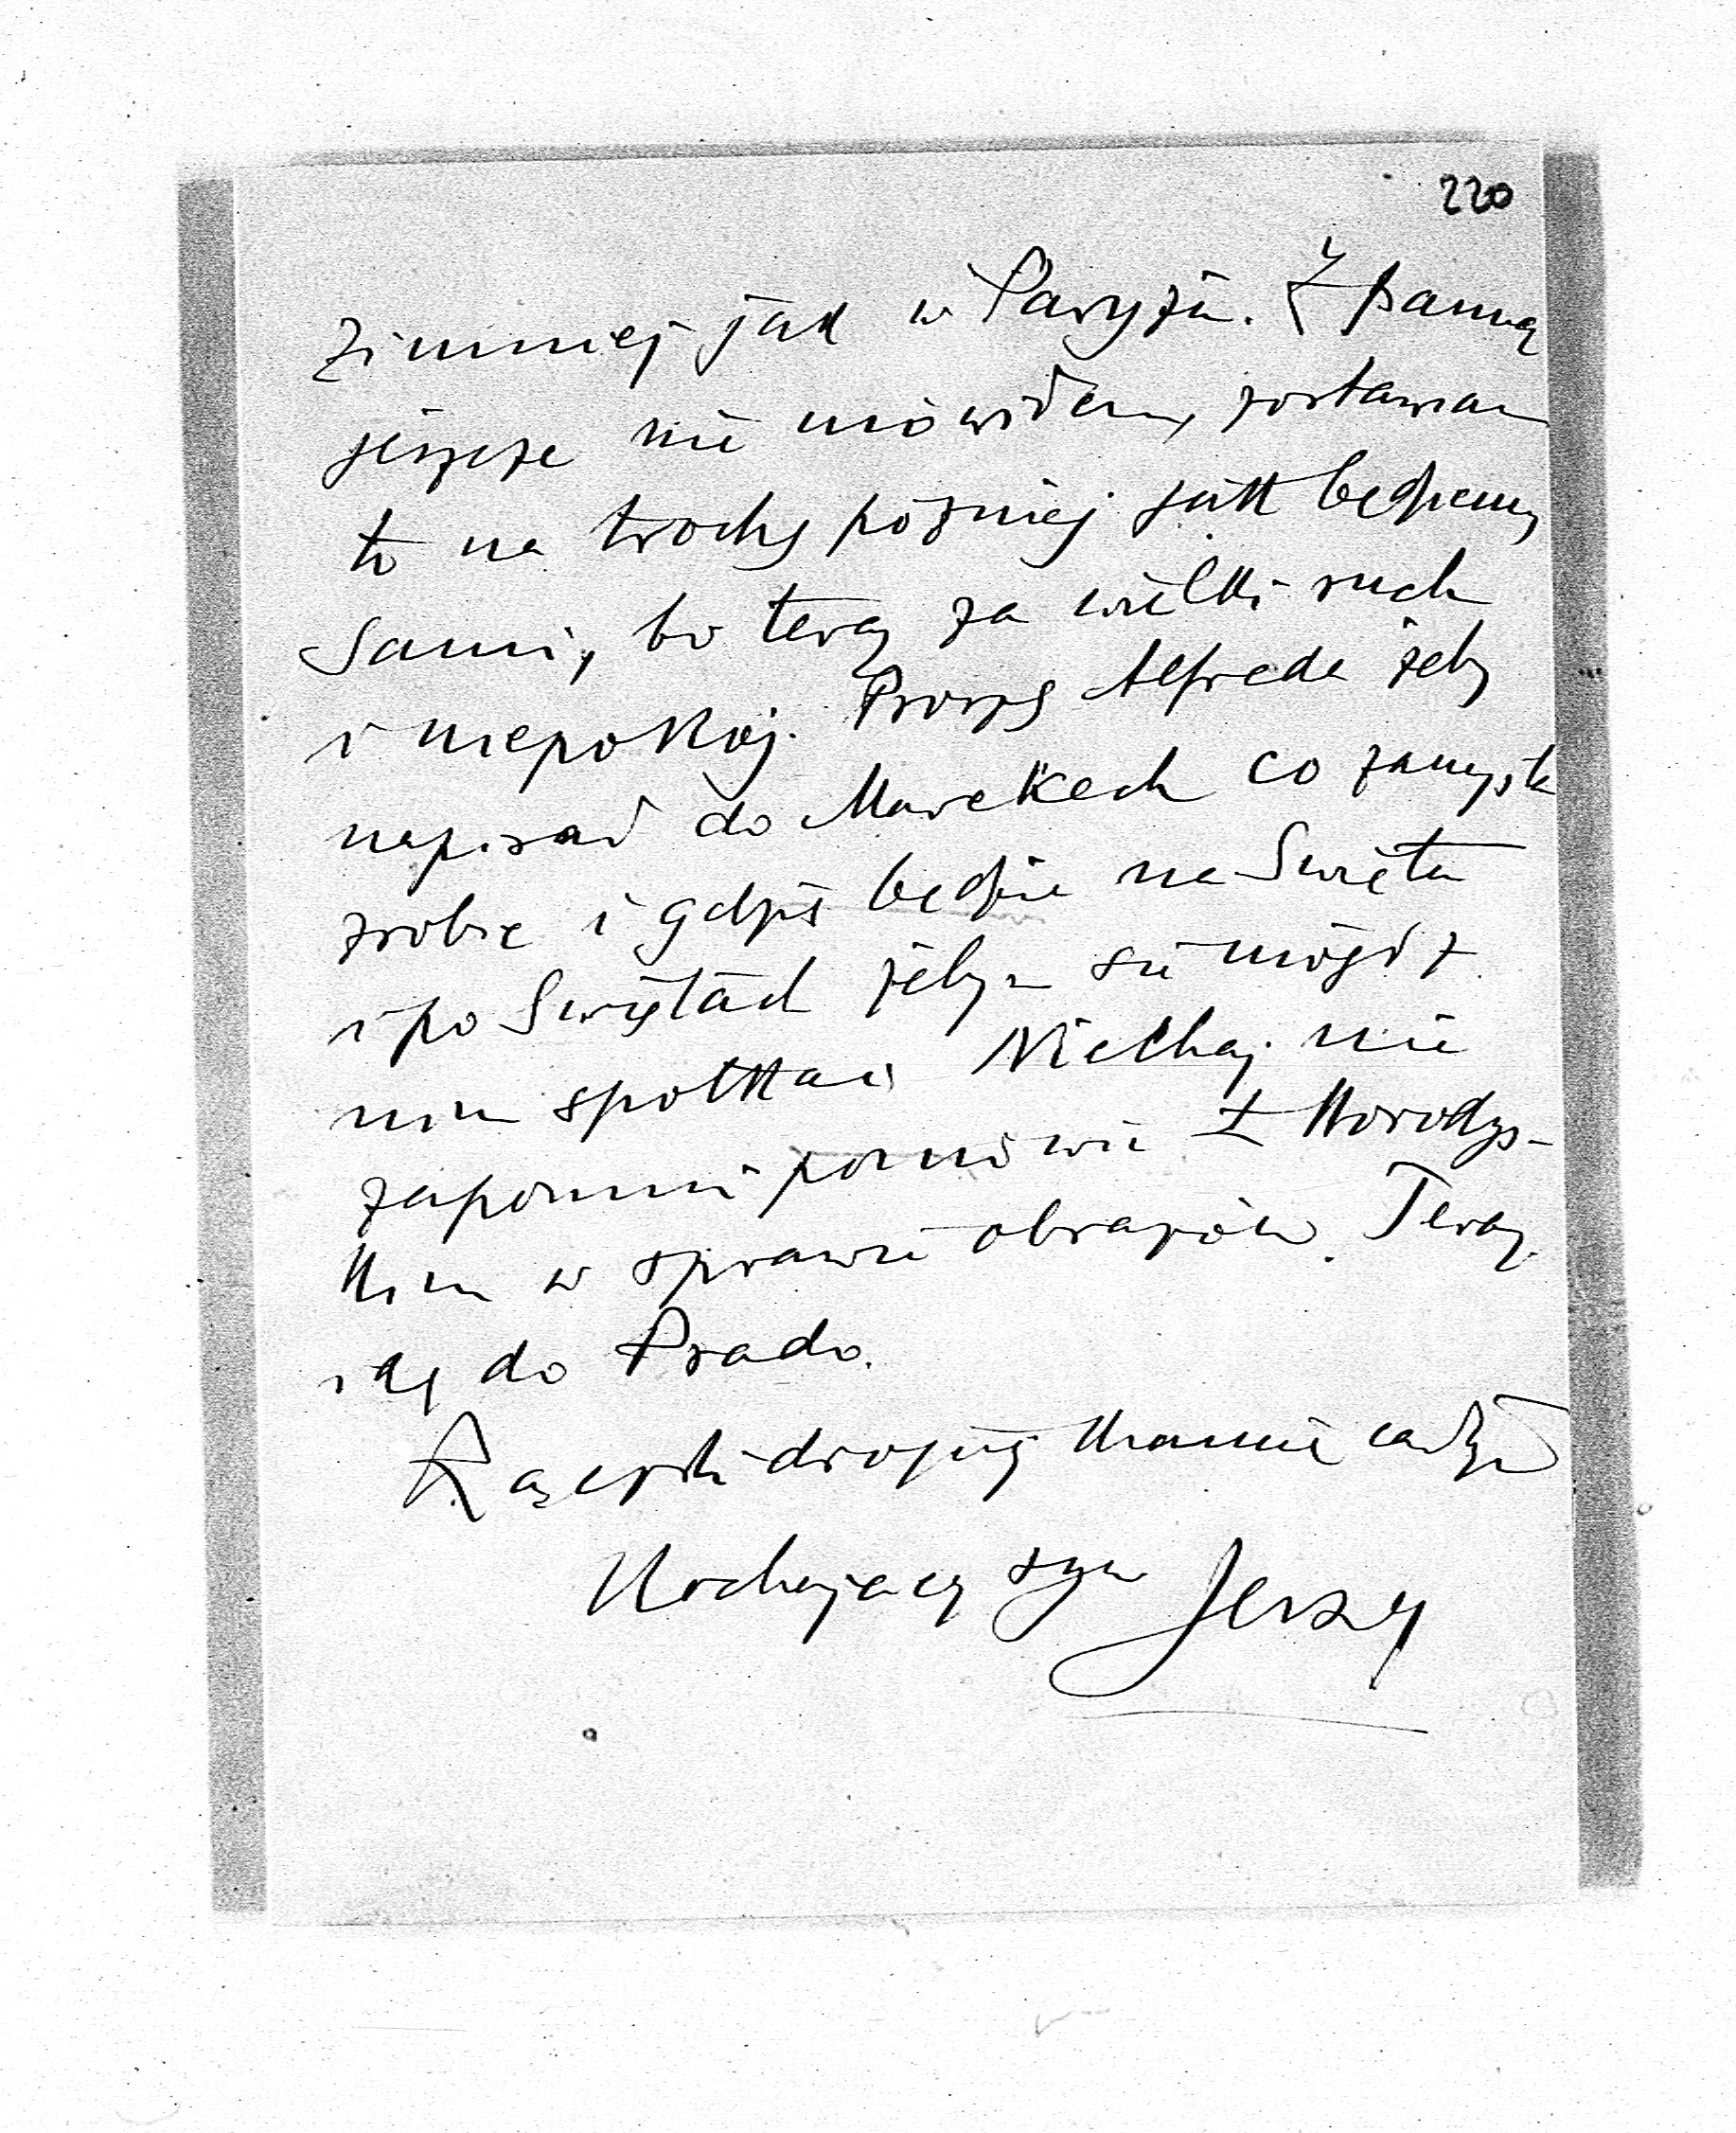 220
zimniej jak w Paryżu. Z panną
jeszcze nie mówiłem, zostawiam
to na trochę później jak będziemy
sami, bo teraz za wielki ruch
i niepokój. Proszę Alfreda żeby
napisał do Marekech co zamyśla
zrobić i gdzie będzie na Święta
i po Świętach żebym się mógł z
nim spotkać. Niechaj nie
zapomni pomówić z Horodys-
kim w sprawie obrazów. Teraz
idę do Prado.
Rączki drogiej Mamie całuję
Kochający syn Jerzy